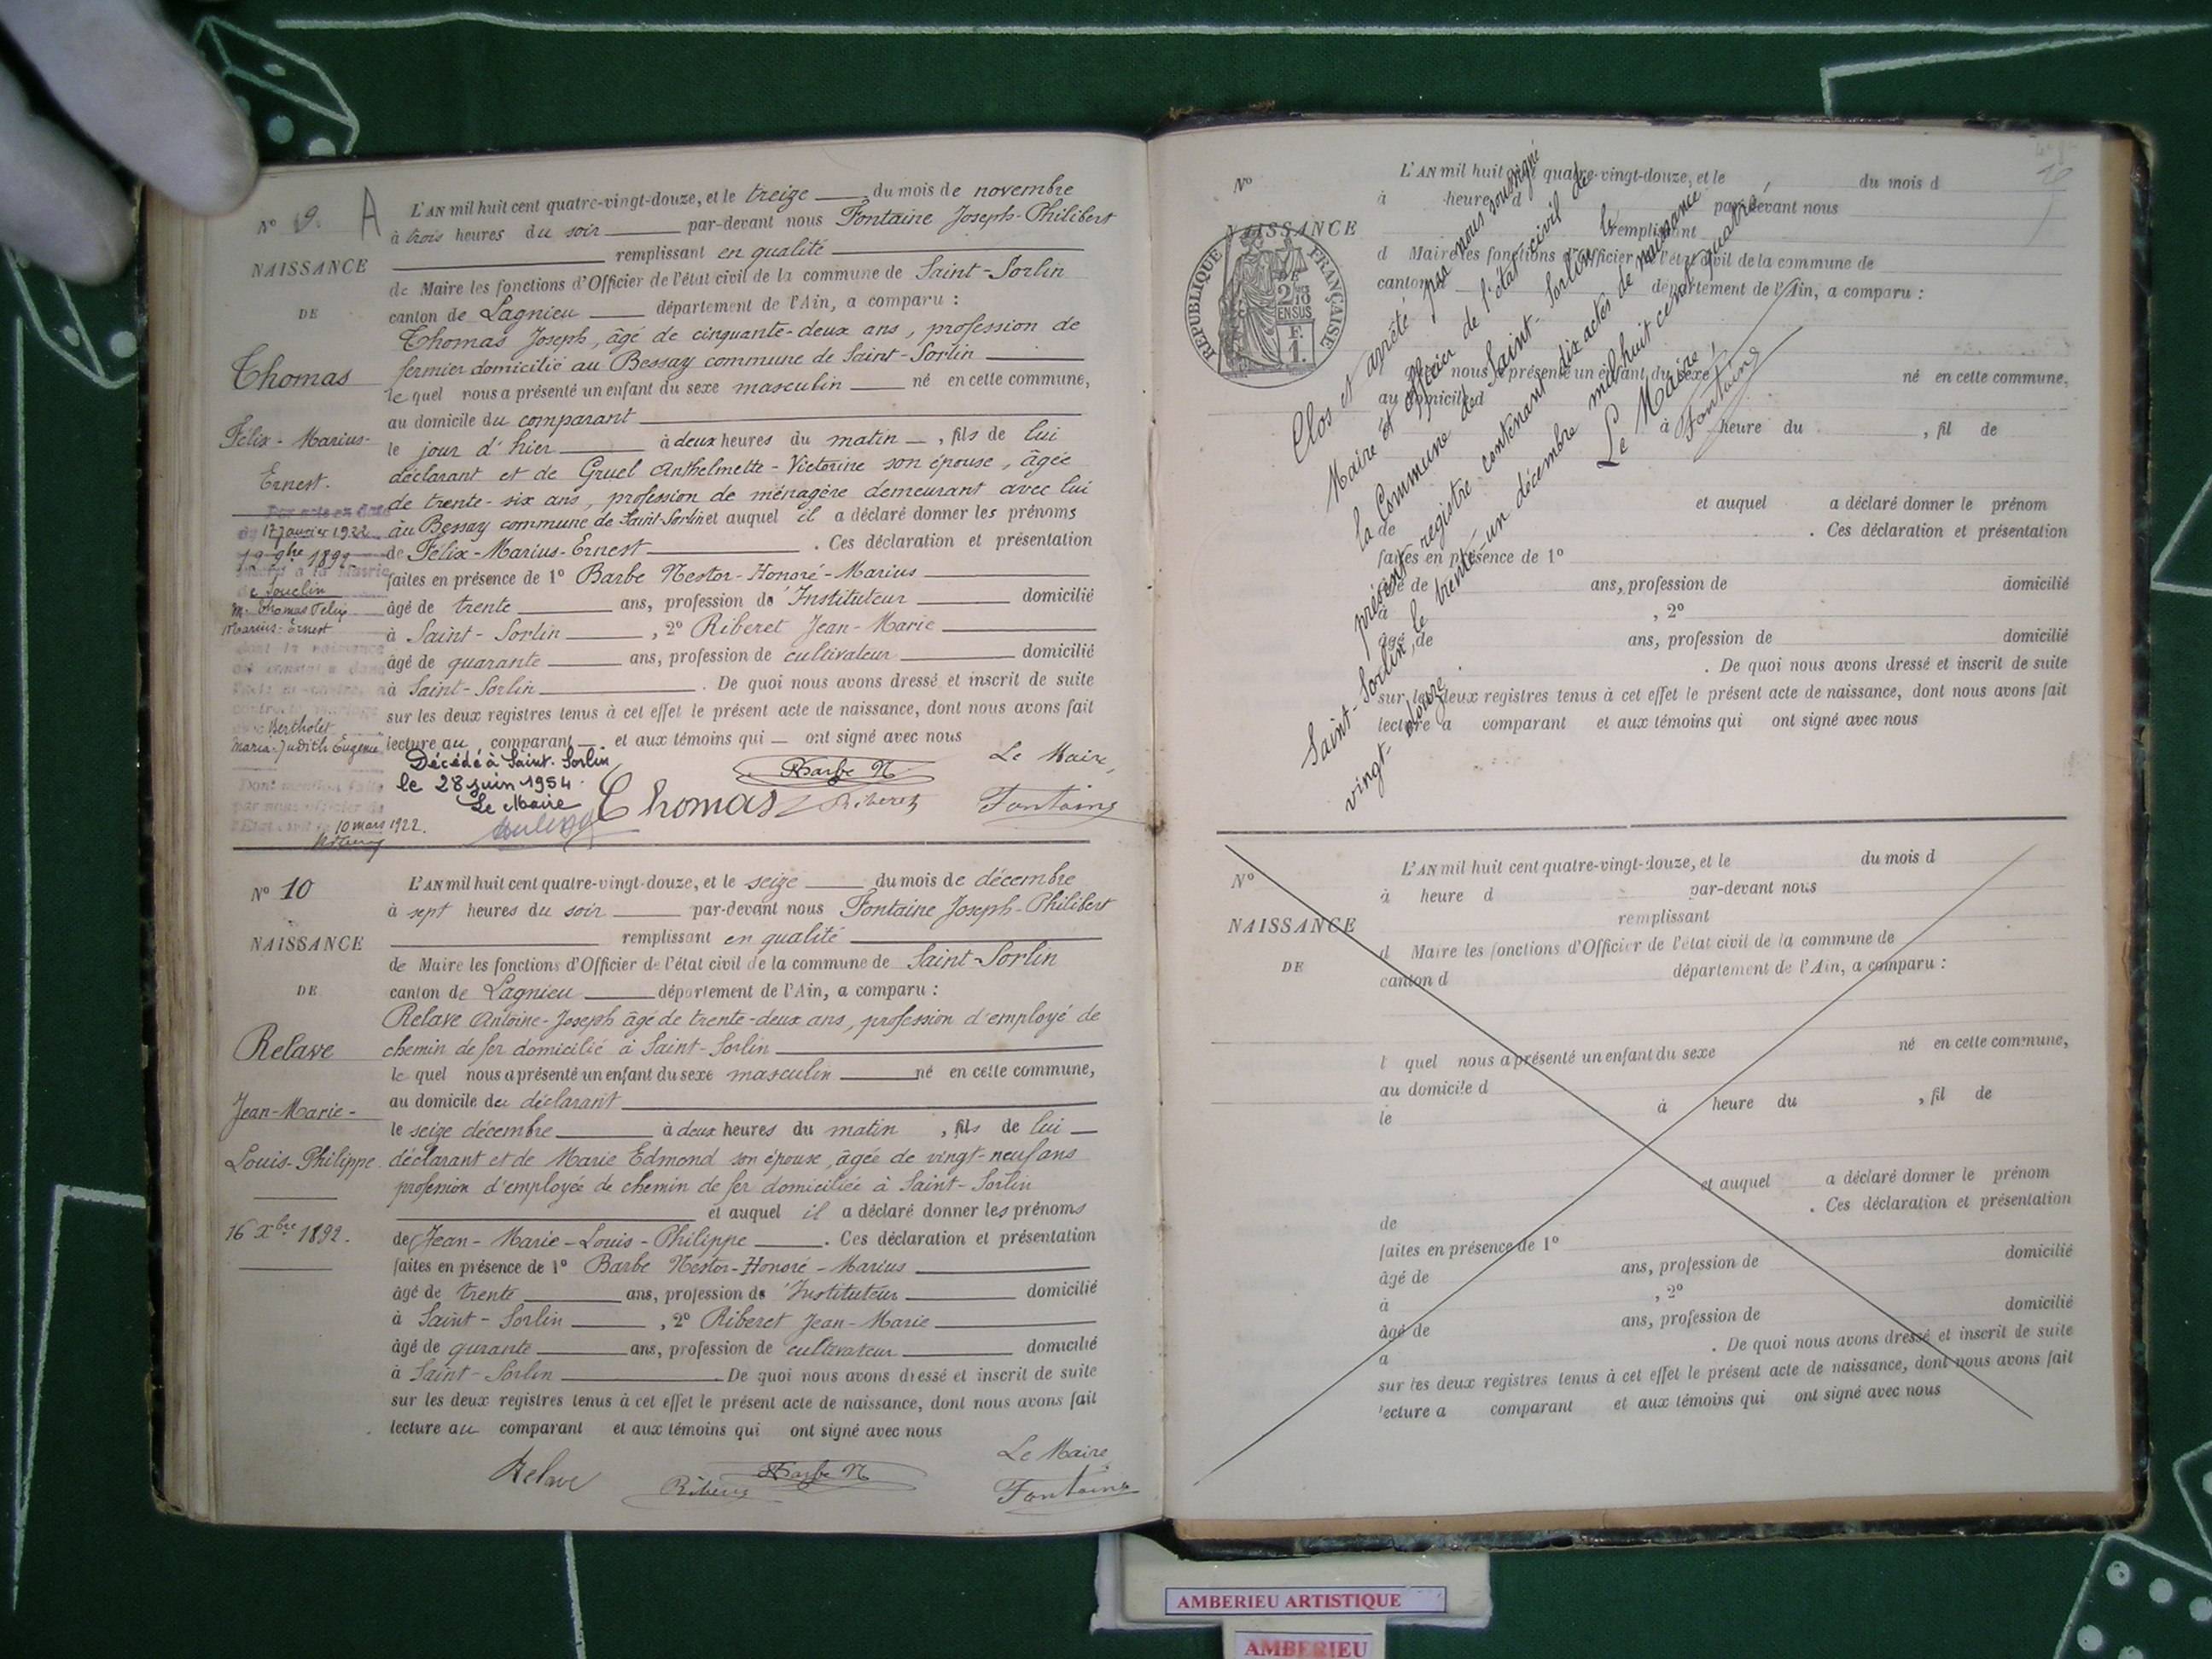 N° 9. A
NAISSANCE
DE
Thomas
Félix-Marius-
Ernest.
17 Janvier 1922
12 9bre 1892
de Souclin
M. Thomas Félix
Marius-Ernest
dont la naissance
Bertholet
Maria-Judith Eugénie
10 mars 1922.
L'AN mil huit cent quatre-vingt-douze, et le treize du mois de novembre
à trois heures du soir par-devant nous Fontaine Joseph-Philibert
remplissant en qualité
de Maire les fonctions d'Officier de l'état civil de la commune de Saint-Sorlin
canton de Lagnieu département de l'Ain, a comparu :
Thomas Joseph, âgé de cinquante-deux ans, profession de
fermier domicilié au Bessay commune de Saint-Sorlin
le quel nous a présenté un enfant du sexe masculin né en cette commune,
au domicile du comparant
le jour d'hier à deux heures du matin, fils de lui
déclarant et de Gruel Anthelmette-Victorine son épouse, âgée
de trente-six ans, profession de ménagère demeurant avec lui
au Bessay commune de Saint-Sorlin et auquel il a déclaré donner les prénoms
de Félix-Marius-Ernest . Ces déclaration et présentation
faites en présence de 1° Barbe Nestor-Honoré-Marius
âgé de trente ans, profession de Instituteur domicilié
à Saint-Sorlin , 2° Riberet Jean-Marie
âgé de quarante ans, profession de cultivateur domicilié
à Saint-Sorlin . De quoi nous avons dressé et inscrit de suite
sur les deux registres tenus à cet effet le présent acte de naissance, dont nous avons fait
lecture au comparant et aux témoins qui ont signé avec nous
Décédé à Saint-Sorlin
le 28 juin 1954.
Le Maire
Thomas
Barbe N
Riberet
Le Maire,
Fontaine
N° 10
NAISSANCE
DE
Relave
Jean-Marie-
Louis-Philippe
16 Xbre 1892.
L'AN mil huit cent quatre-vingt-douze, et le seize du mois de décembre
à sept heures du soir par-devant nous Fontaine Joseph-Philibert
remplissant en qualité
de Maire les fonctions d'Officier de l'état civil de la commune de Saint-Sorlin
canton de Lagnieu département de l'Ain, a comparu :
Relave Antoine-Joseph âgé de trente-deux ans, profession d'employé de
chemin de fer domicilié à Saint-Sorlin
le quel nous a présenté un enfant du sexe masculin né en cette commune,
au domicile du déclarant
le seize décembre à deux heures du matin , fils de lui
déclarant et de Marie Edmond son épouse, âgée de vingt-neuf ans
profession d'employée de chemin de fer domiciliée à Saint-Sorlin
et auquel il a déclaré donner les prénoms
de Jean-Marie-Louis-Philippe . Ces déclaration et présentation
faites en présence de 1° Barbe Nestor-Honoré-Marius
âgé de trente ans, profession de Instituteur domicilié
à Saint-Sorlin , 2° Riberet Jean-Marie
âgé de qurante ans, profession de cultivateur domicilié
à Saint-Sorlin De quoi nous avons dressé et inscrit de suite
sur les deux registres tenus à cet effet le présent acte de naissance, dont nous avons fait
lecture au comparant et aux témoins qui ont signé avec nous
Relave
Riberet
Barbe N
Le Maire
Fontaine
N°
NAISSANCE
RÉPUBLIQUE FRANÇAISE
2/10 EN SUS
F.
1.
L'AN mil huit cent quatre-vingt-douze, et le du mois d
à heure d par-devant nous
remplissant
d Maire les fonctions d'Officier de l'état civil de la commune de
canton d département de l'Ain, a comparu :
quel nous a présenté un enfant du sexe né en cette commune,
au domicile d
à heure du , fil de
et auquel a déclaré donner le prénom
de . Ces déclaration et présentation
faites en présence de 1°
âgé de ans, profession de domicilié
à , 2°
âgé de ans, profession de domicilié
. De quoi nous avons dressé et inscrit de suite
sur les deux registres tenus à cet effet le présent acte de naissance, dont nous avons fait
lecture a comparant et aux témoins qui ont signé avec nous
Clos et arrêté par nous soussigné
Maire et officier de l'état civil de
la Commune de Saint-Sorlin le
présent registre contenant dix actes de naissance.
Saint-Sorlin, le trente-un décembre mil huit cent quatre
vingt-douze.
Le Maire,
Fontaine
N°
NAISSANCE
DE
L'AN mil huit cent quatre-vingt-douze, et le du mois d
à heure d par-devant nous
remplissant
d Maire les fonctions d'Officier de l'état civil de la commune de
canton d département de l'Ain, a comparu :
l quel nous a présenté un enfant du sexe né en cette commune,
au domicile d
le à heure du , fil de
et auquel a déclaré donner le prénom
de . Ces déclaration et présentation
faites en présence de 1°
âgé de ans, profession de domicilié
à , 2°
âgé de ans, profession de domicilié
a . De quoi nous avons dressé et inscrit de suite
sur les deux registres tenus à cet effet le présent acte de naissance, dont nous avons fait
lecture a comparant et aux témoins qui ont signé avec nous
AMBERIEU ARTISTIQUE
AMBERIEU